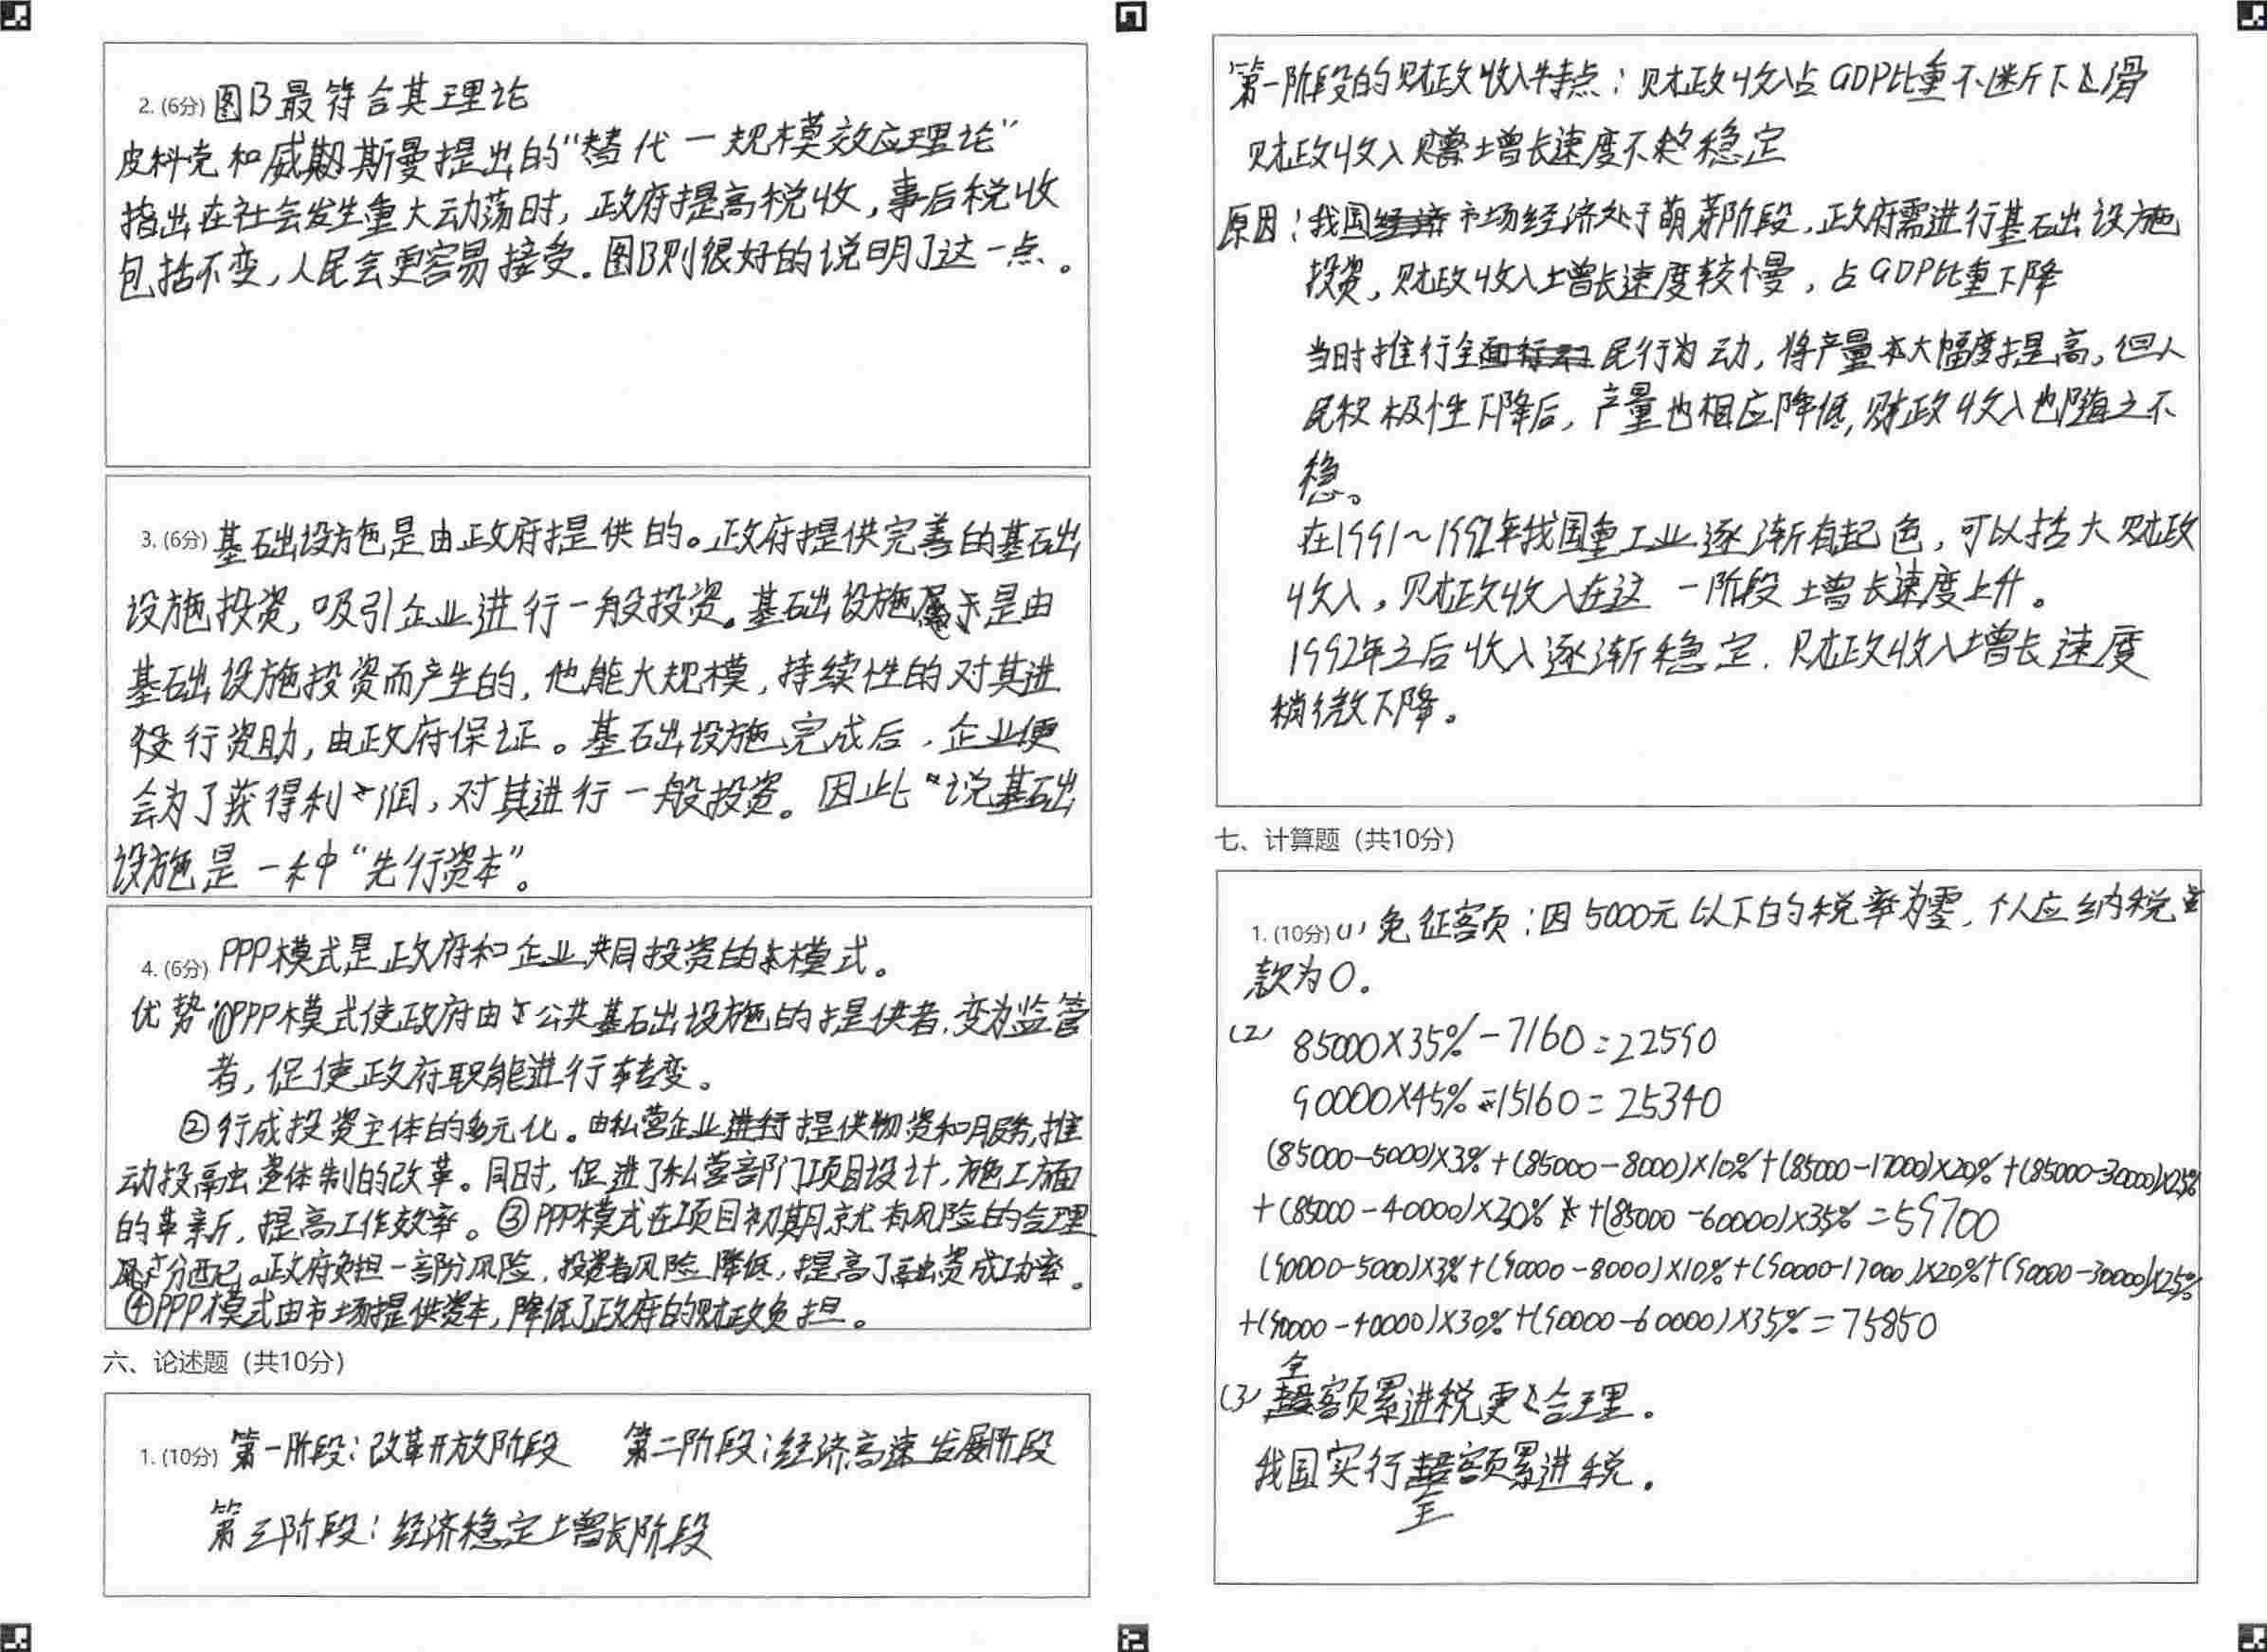 2. (6分) 图B最符合其理论
皮科克和威斯曼提出的“替代一规模效应理论”
指出在社会发生重大动荡时，政府提高税收，事后税收
包括不变，人民会更容易接受。图B则很好的说明了这一点。
3. (6分) 基础设施是由政府提供的。政府提供完善的基础
设施投资，吸引企业进行一般投资。基础设施是由
基础设施投资而产生的，他能大规模，持续性的对其进
行资助，由政府保证。基础设施完成后，企业便
会为了获得利润，对其进行一般投资。因此“说基础
设施是一种“先行资本”。
4. (6分) PPP模式是政府和企业共同投资的模式。
优势：①PPP模式使政府由公共基础设施的提供者，变为监管
者，促使政府职能进行转变。
②行成投资主体的多元化。由私营企业提供物资和服务，推
动投融资体制的改革。同时，促进了私营部门项目设计，施工方面
的革新，提高工作效率。③PPP模式在项目初期就有风险的合理
分配。政府负担一部分风险，投资者风险降低，提高了融资成功率。
④PPP模式由市场提供资本，降低了政府的财政负担。
六、论述题（共10分）
1. (10分) 第一阶段：改革开放阶段 第二阶段：经济高速发展阶段
第三阶段：经济稳定增长阶段
第一阶段的财政收入特点：财政收入占GDP比重不断下滑
财政收入增长速度不稳定
原因：我国市场经济处于萌芽阶段，政府需进行基础设施
投资，财政收入增长速度较慢，占GDP比重下降
当时推行全民行动，将产量大幅度提高，但人
民积极性下降后，产量也相应降低，财政收入也随之不
稳。
在1991～1992年我国重工业逐渐有起色，可以括大财政
收入，财政收入在这一阶段增长速度上升。
1992年之后收入逐渐稳定，财政收入增长速度
稍微下降。
七、计算题（共10分）
1. (10分) (1) 免征客页：因5000元以下的税率为零，个人应纳税
款为0。
(2) 85000×35%-7160=22590
90000×45%-15160=25340
(85000-5000)×3%+(85000-8000)×10%+(85000-17000)×20%+(85000-30000)×25%
+(85000-40000)×30%+(85000-60000)×35%=59700
(90000-5000)×3%+(90000-8000)×10%+(90000-17000)×20%+(90000-30000)×25%
+(90000-40000)×30%+(90000-60000)×35%=75850
(3) 全额累进税更合理。
我国实行全额累进税。